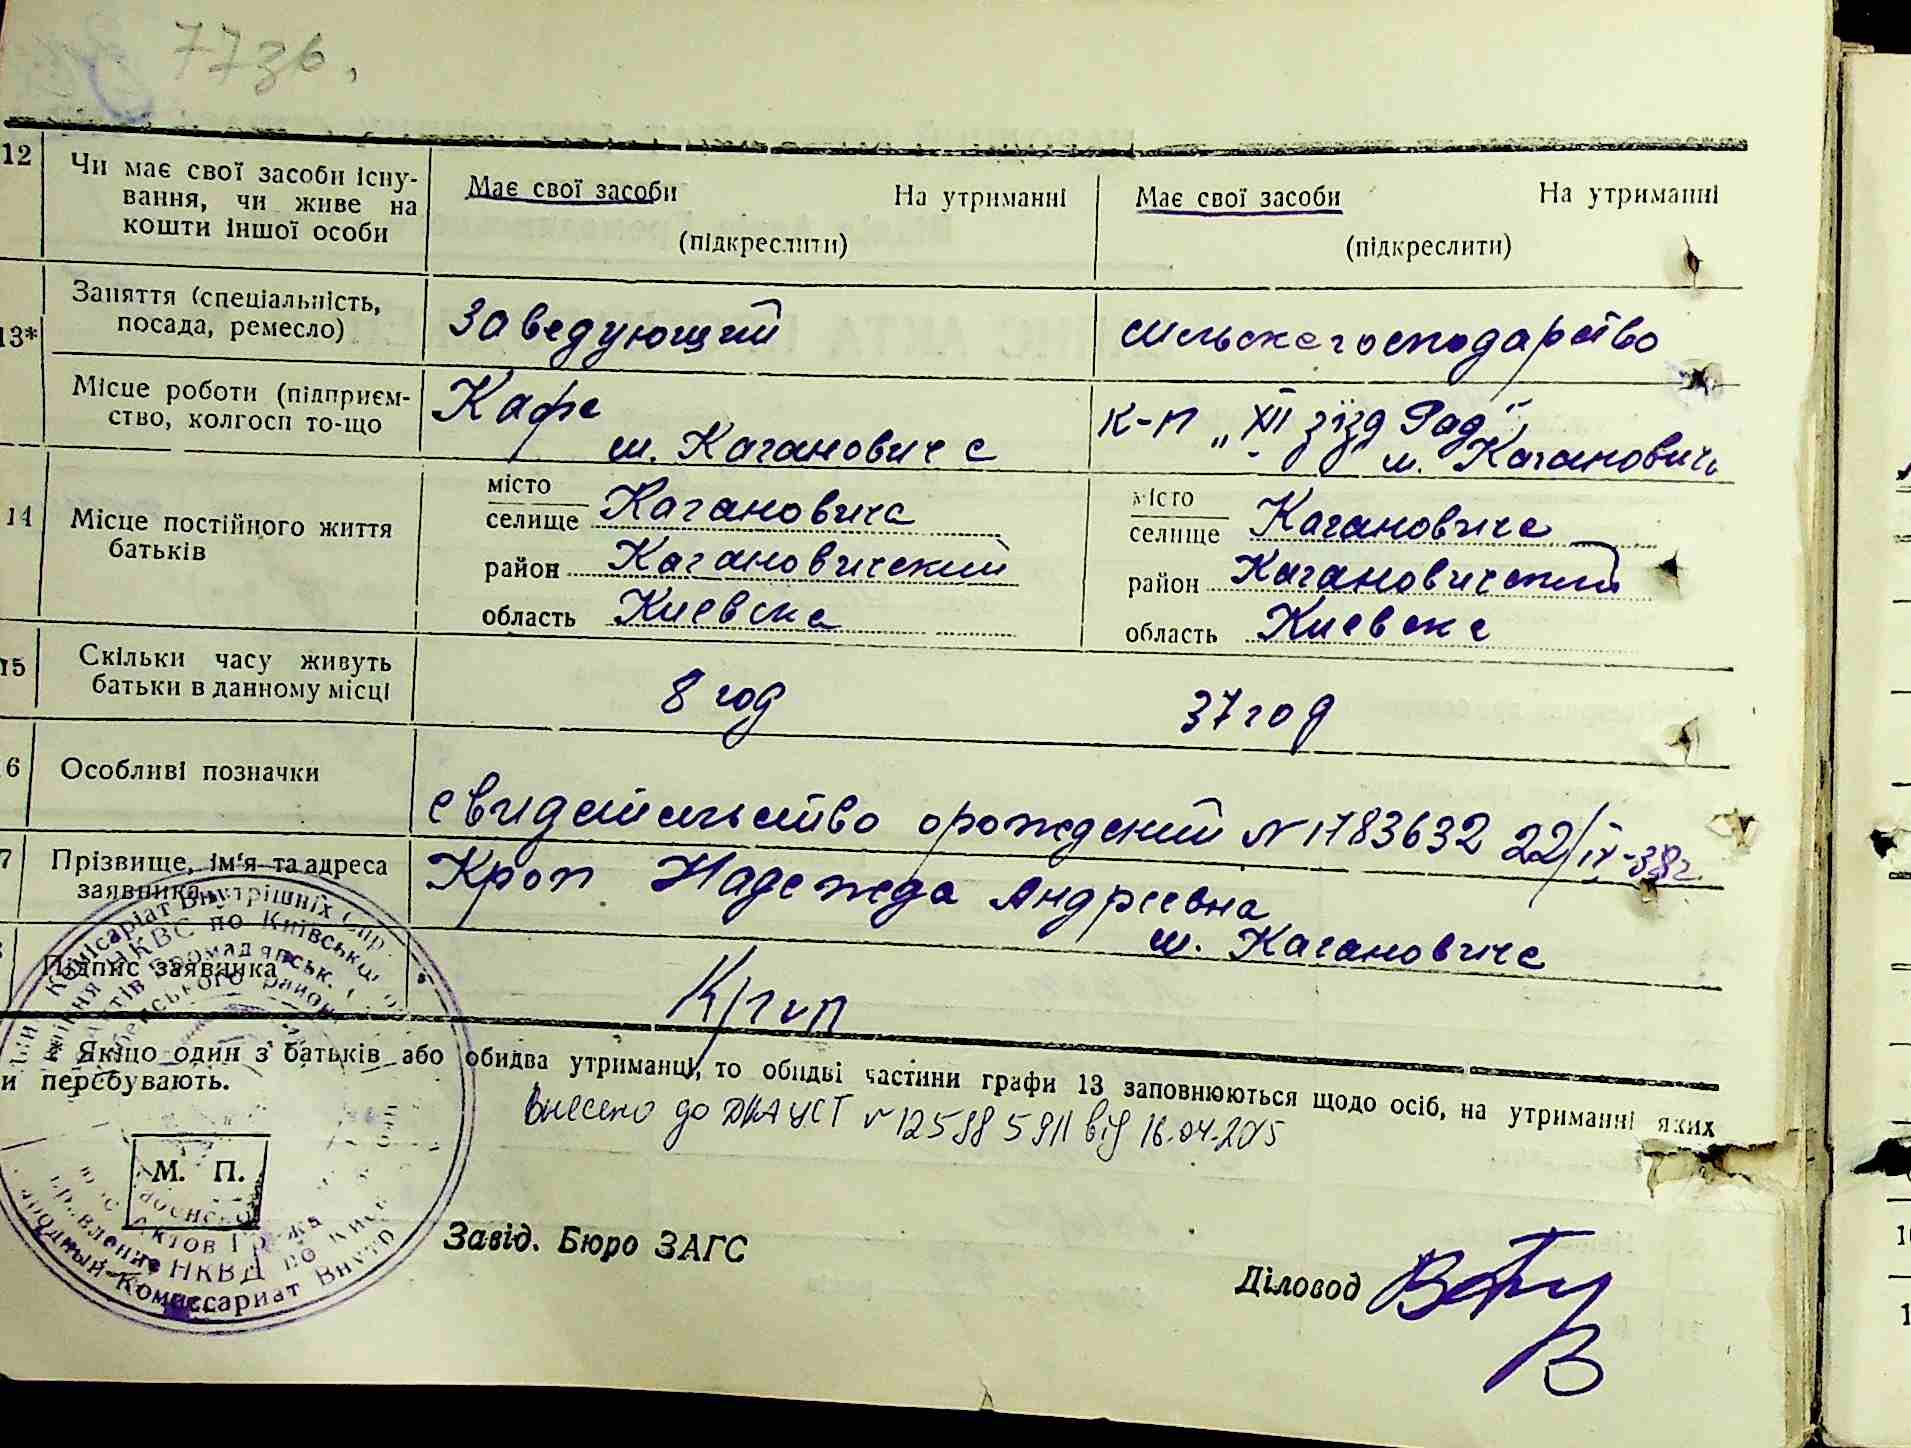 77зв.
12 Чи має свої засоби існу-
вання, чи живе на
кошти іншої особи
Має свої засоби На утриманні
(підкреслити)
Має свої засоби На утриманні
(підкреслити)
13* Заняття (спеціальність,
посада, ремесло)
Заведующий
сильскегосподарство
Місце роботи (підприєм-
ство, колгосп то-що
Кафе
м. Кагановича
к-п „XII зїзд Рад"
м. Кагановича
14 Місце постійного життя
батьків
місто
селище Кагановича
район Кагановичский
область Киевска
місто
селище Кагановича
район Кагановичский
область Киевска
15 Скільки часу живуть
батьки в данному місці
8 год
37 год
6 Особливі позначки
свидетельство о рождений № 1783632 22/IV-38г.
7 Прізвище, ім'я та адреса
заявника
Кроп Надежда Андреевна
м. Кагановича
Підпис заявника
Кроп
Якщо один з батьків або обидва утриманці, то обидві частини графи 13 заповнюються щодо осіб, на утриманні яких
и перебувають.
Внесено до ДРАЦСГ № 12598591 від 16.04.2015
М. П.
Завід. Бюро ЗАГС
Діловод
Комісаріат Внутрішніх Спр
НКВС по Київській
Актів Громадянськ.
району
Актов Гражда
управление НКВД по Киев
Народный Комиссариат Внутр